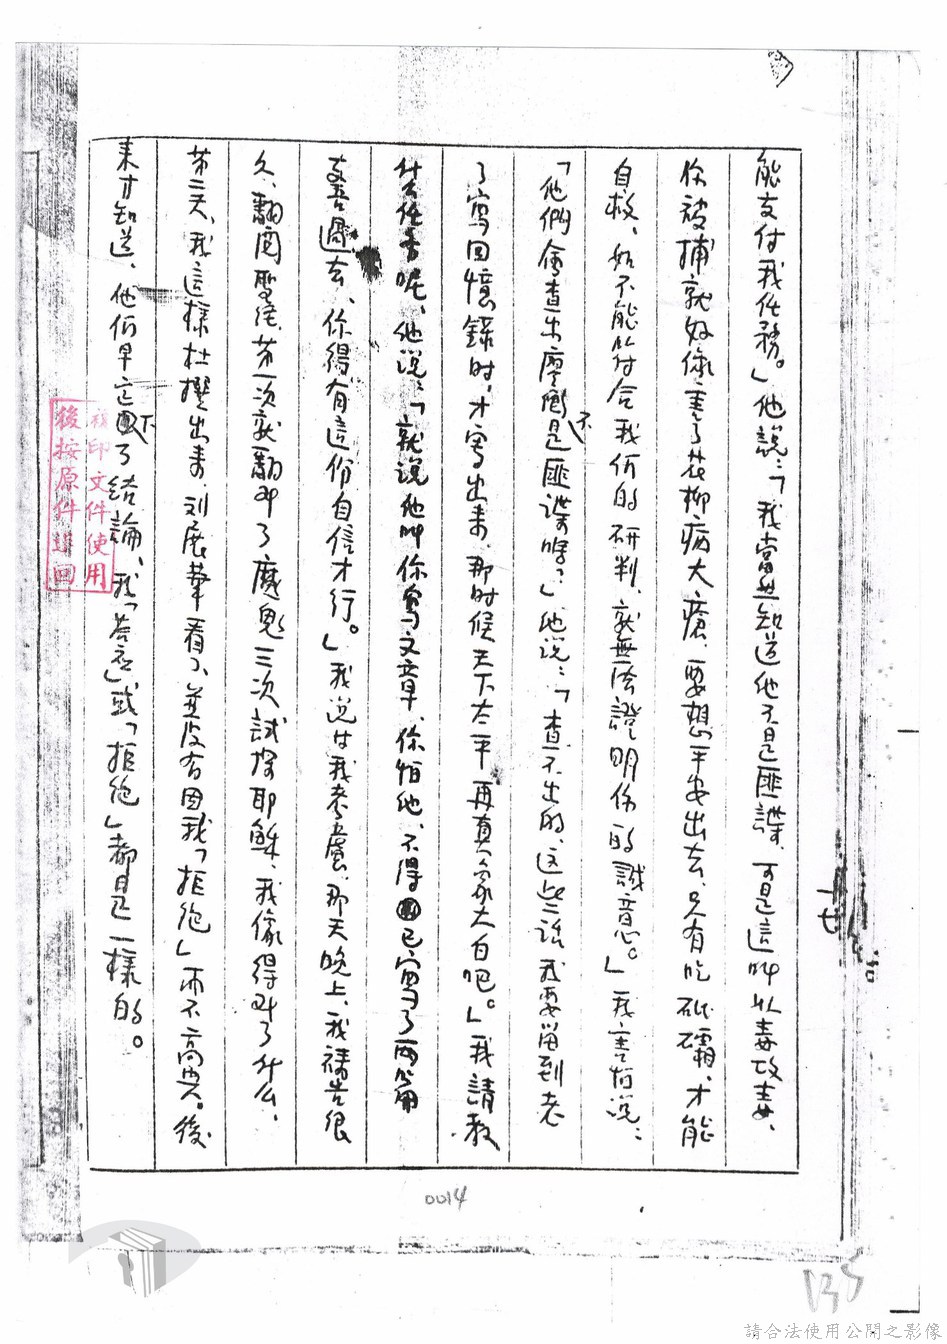 能支付我任務。」他說:「我當然知道他不是匪諜、可是這叫以毒攻毒、
你被捕就好像害了花柳病大瘡、要想平安出去、只有吃砒霜、才能
自救、如不能符合我们的研判、就無法證明你的誠意。」我害怕说:
「他們會查出廖衡不是匪諜啥?」他说:「查不出的、这些話我要留到老
了寫回憶錄时、才寫出来、那时候天下太平再真象大白吧。」我請教
什么任务呢、他说:「就说他叫你寫文章、你怕他、不得已寫了兩篇
支吾過去、你得有這份自信才行。」我说让我考慮、那天晚上、我禱告很
久、翻閱聖经、第一次就翻到了魔鬼三次試探耶穌、我像得到了什么、
第二天、我這樣杜撰出来刘展華看了、並没有因我「拒絕」而不高興。後
来才知道、他们早已下了结論、我「答应」或「拒绝」都是一樣的。
複印文件使用
後按原件退回
0014
135
請合法使用公開之影像